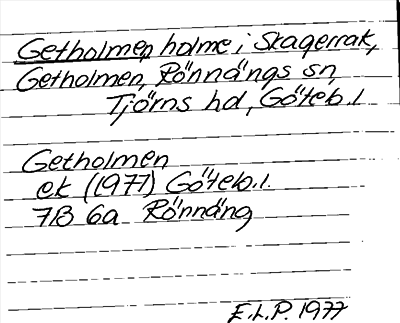 Getholmen, holme i Skagerrak,
Getholmen, Rönnängs sn,
Tjörns hd, Göteb.l
Getholmen
ek (1977) Göteb.l.
7B 6a Rönnäng
E.L.P. 1977